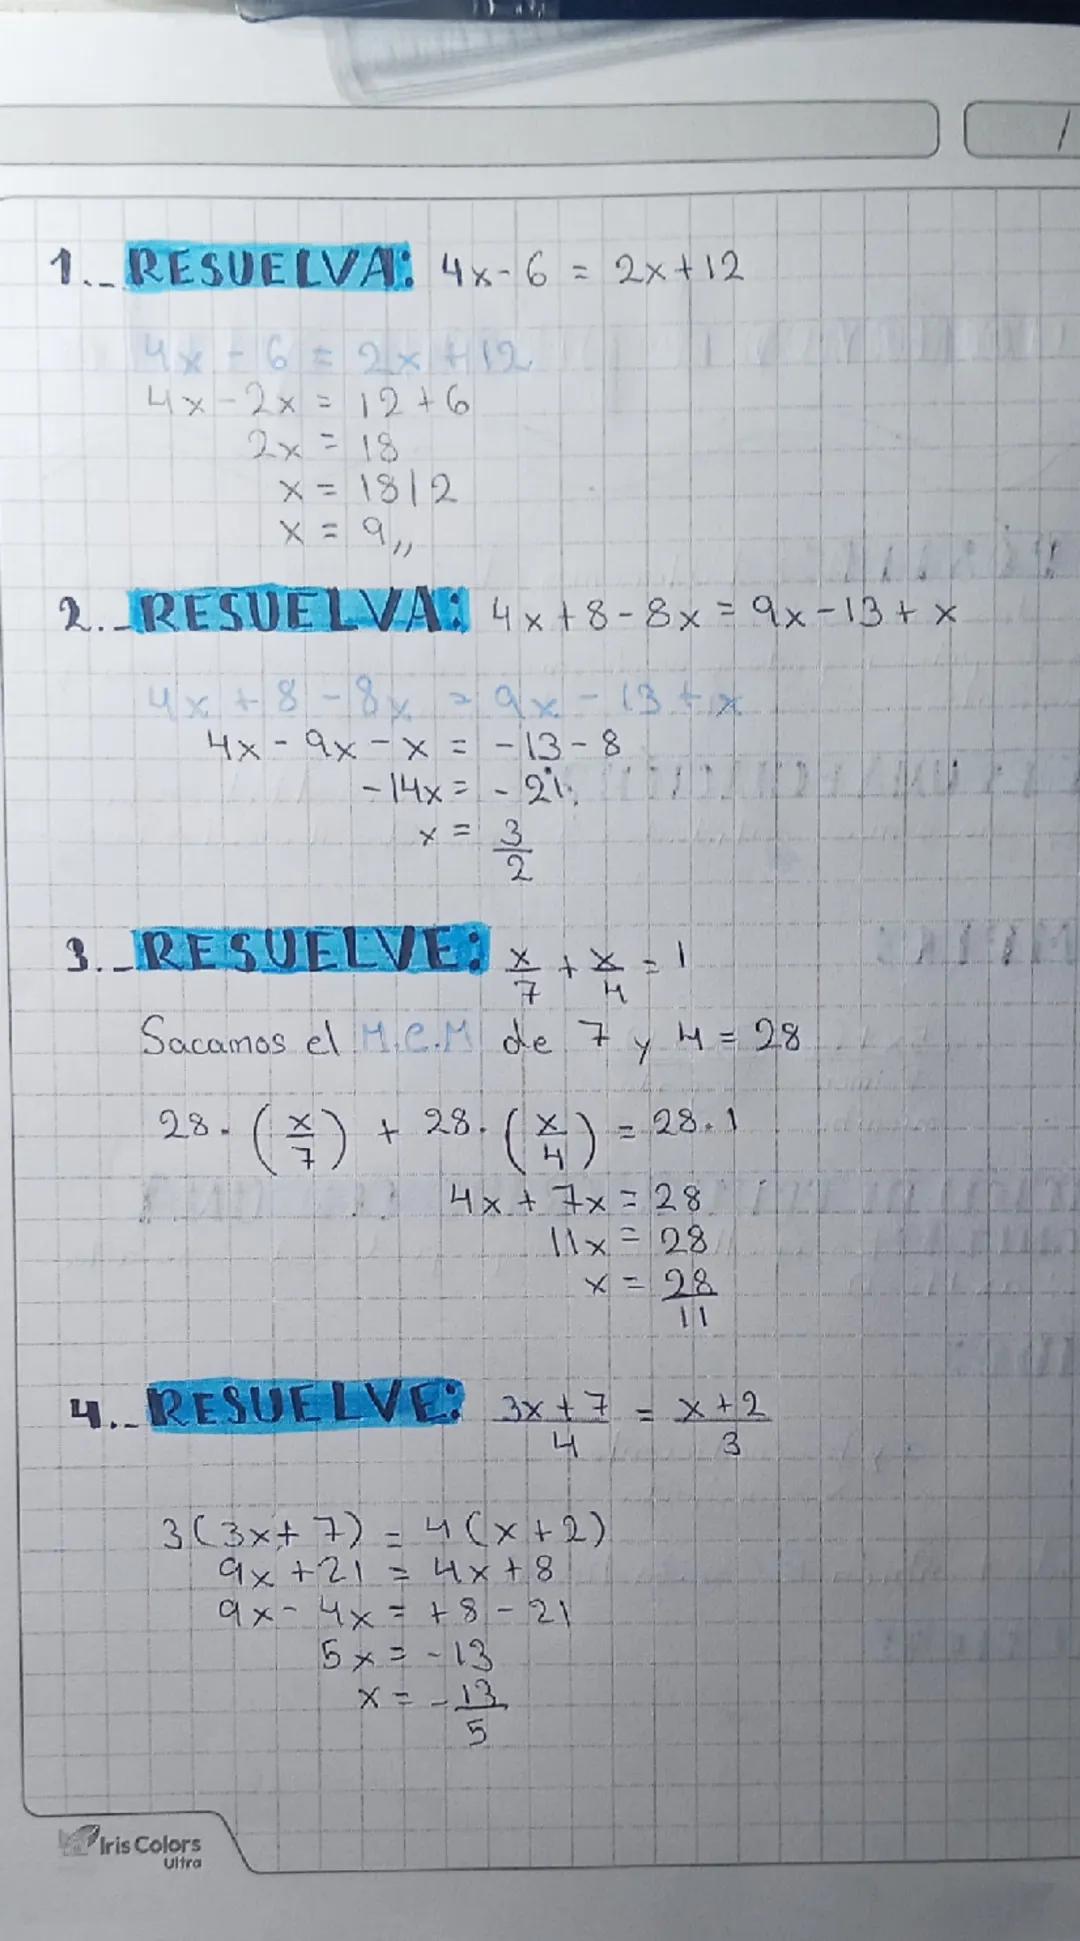 1.- RESUELVA: 4x-6 = 2x+12
4x - 6 = 2x + 12
4x - 2x = 12 + 6
2x = 18
x = 18/2
x = 9,,
2.- RESUELVA: 4x+8-8x = 9x-13+x
4x + 8 - 8x = 9x - 13 + x
4x - 9x - x = -13 - 8
-14x = -21
x = 3/2
3.- RESUELVE: x/7 + x/4 = 1
Sacamos el M.C.M de 7 y 4 = 28
28. (x/7) + 28. (x/4) = 28.1
4x + 7x = 28
11x = 28
x = 28/11
4.- RESUELVE: 3x+7/4 = x+2/3
3(3x+7) = 4(x+2)
9x + 21 = 4x + 8
9x - 4x = +8 - 21
5x = -13
x = -13/5
Iris Colors
Ultra